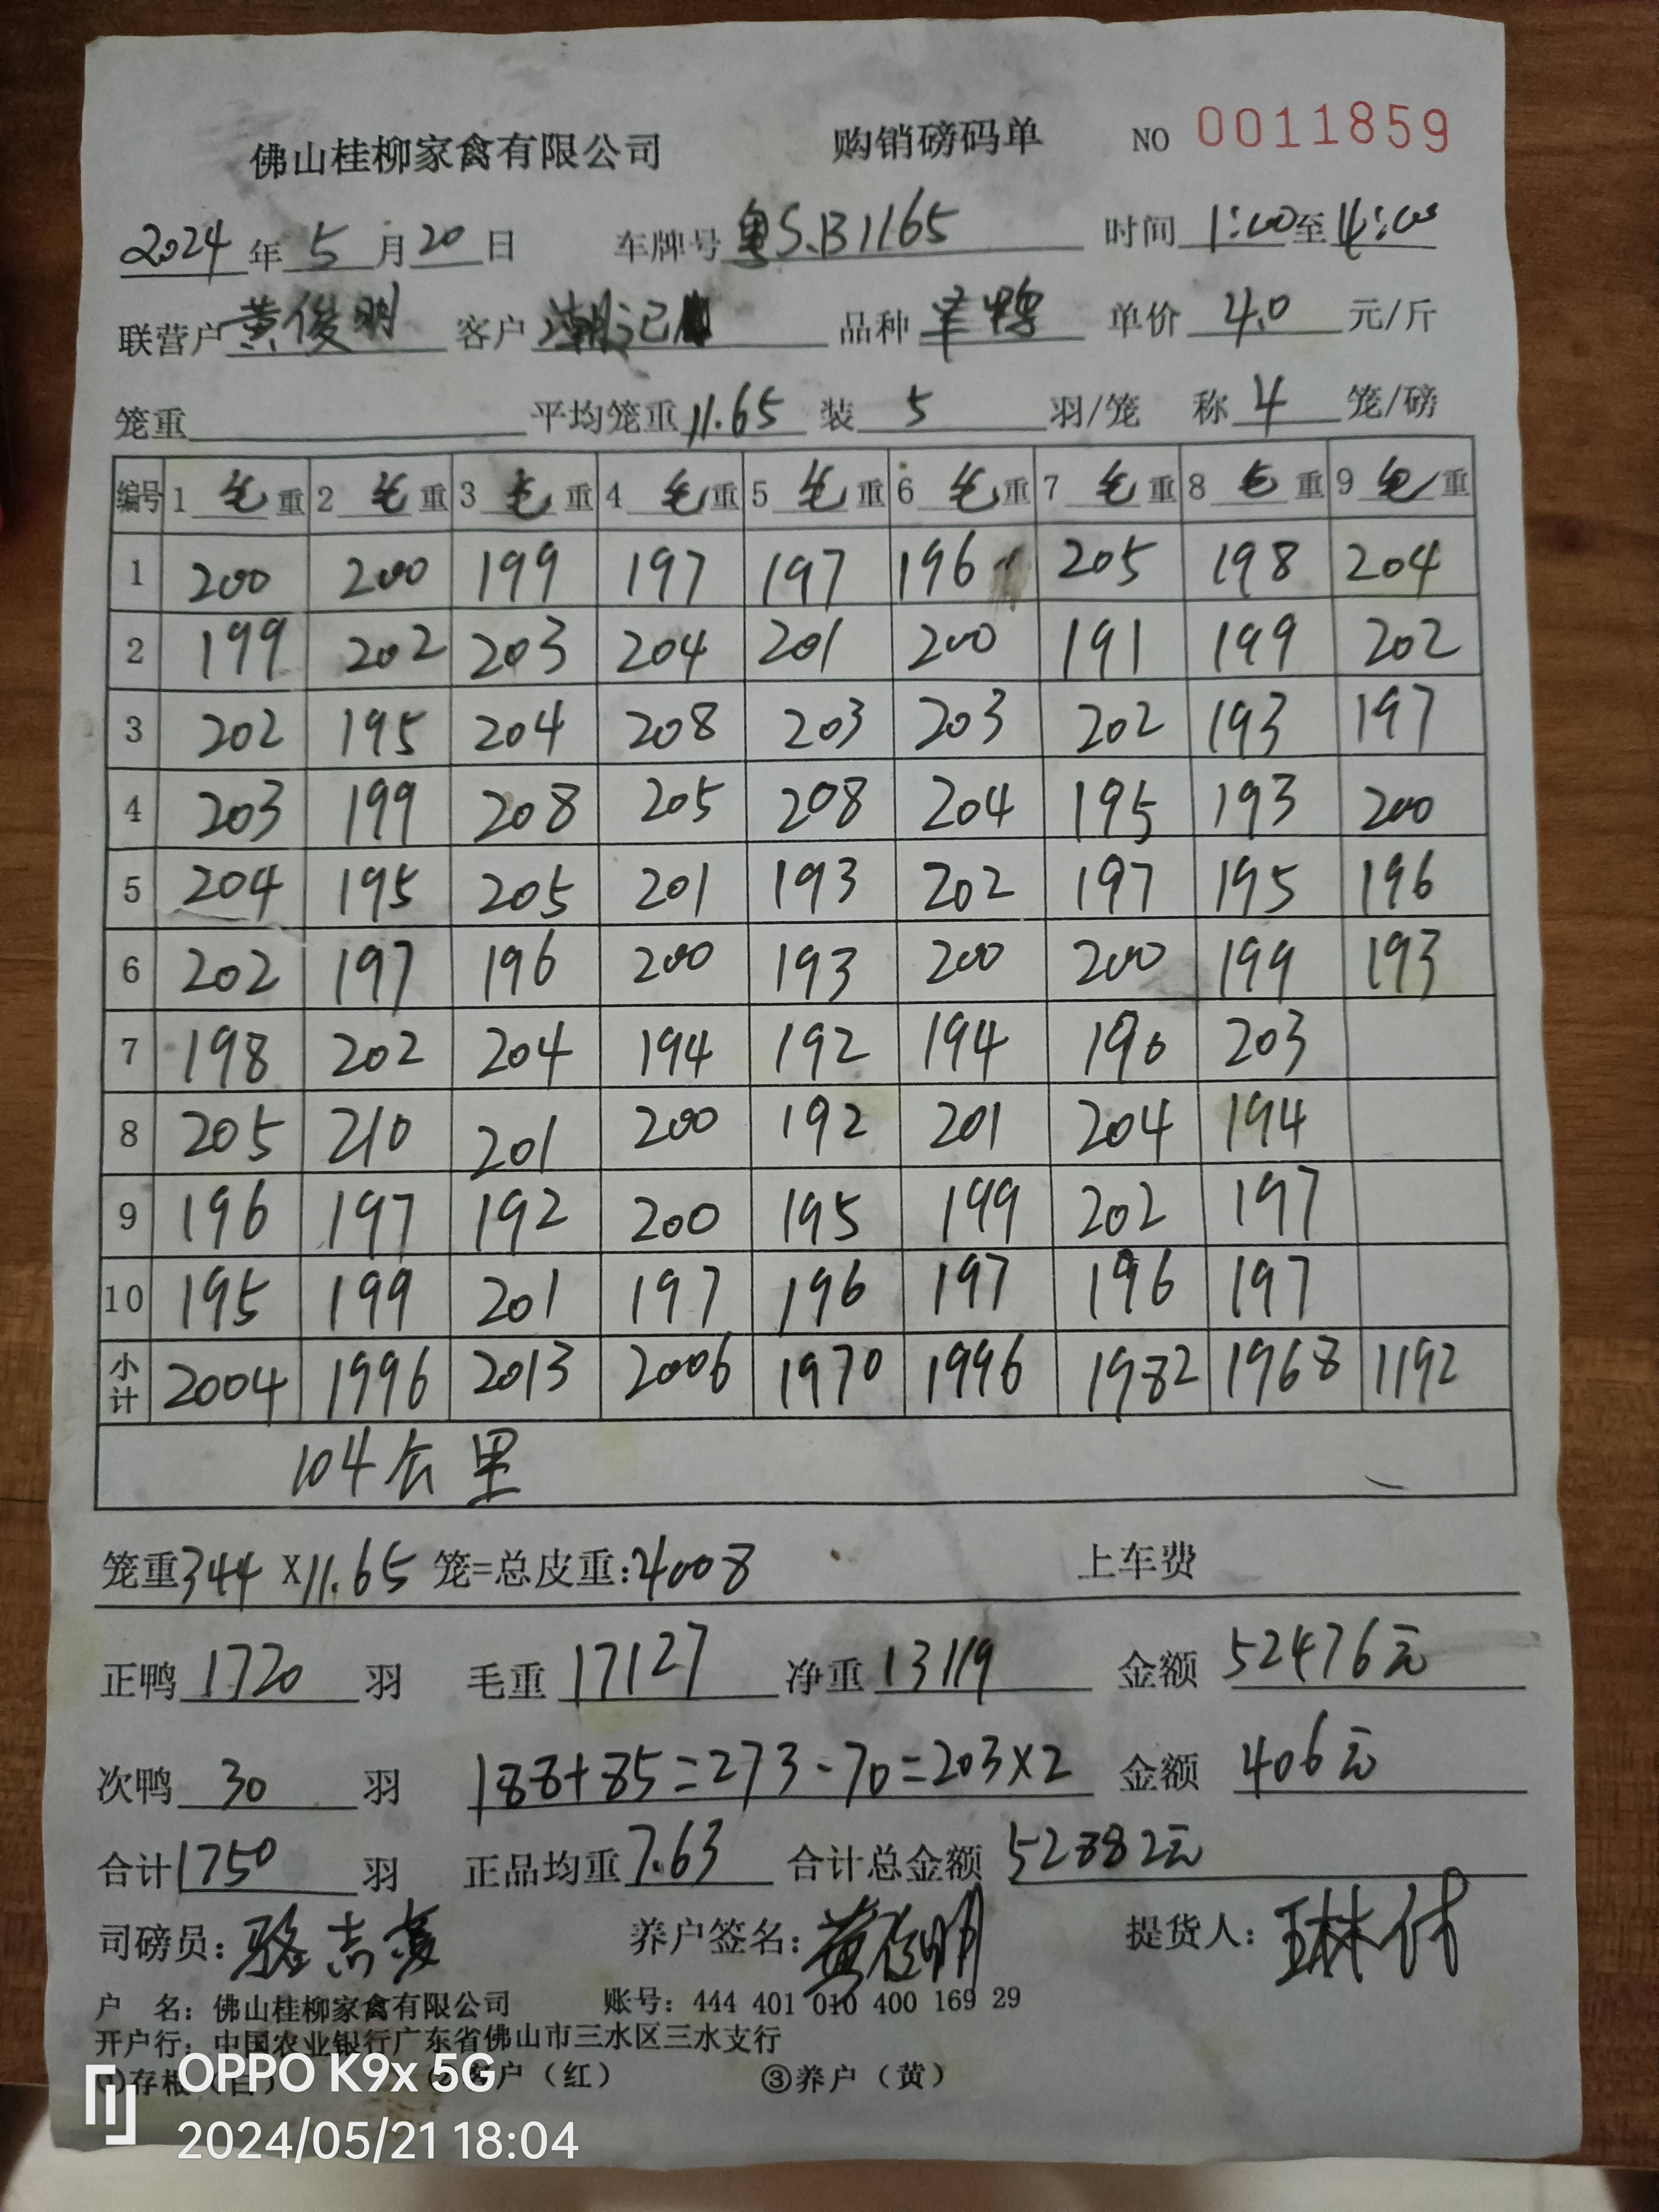 佛山桂柳家禽有限公司 购销磅码单 NO 0011859
2024年5月20日 车牌号粤S.B1165 时间1:00至4:00
联营户黄俊明 客户潮记 品种 单价4.0元/斤
笼重 平均笼重11.65 装5羽/笼 称4笼/磅
编号 1毛重 2毛重 3毛重 4毛重 5毛重 6毛重 7毛重 8毛重 9毛重
1 200 200 199 197 197 196 205 198 204
2 199 202 203 204 201 200 191 199 202
3 202 195 204 208 203 203 202 193 197
4 203 199 208 205 208 204 195 193 200
5 204 195 205 201 193 202 197 195 196
6 202 197 196 200 193 200 200 199 193
7 198 202 204 194 192 194 190 203
8 205 210 201 200 192 201 204 194
9 196 197 192 200 195 199 202 197
10 195 199 201 197 196 197 196 197
小计 2004 1996 2013 2006 1970 1996 1982 1968 1192
104公里
笼重344X11.65笼=总皮重:4008 上车费
正鸭1720羽 毛重17127 净重13119 金额52476元
次鸭30羽 188+85=273-70=203×2 金额406元
合计1750羽 正品均重7.63 合计总金额52882元
司磅员:骆志 养户签名:黄俊明 提货人:
户 名:佛山桂柳家禽有限公司 账号:444 401 010 400 169 29
开户行:中国农业银行广东省佛山市三水区三水支行
①存根(白) ②客户(红) ③养户(黄)
OPPO K9x 5G
2024/05/21 18:04